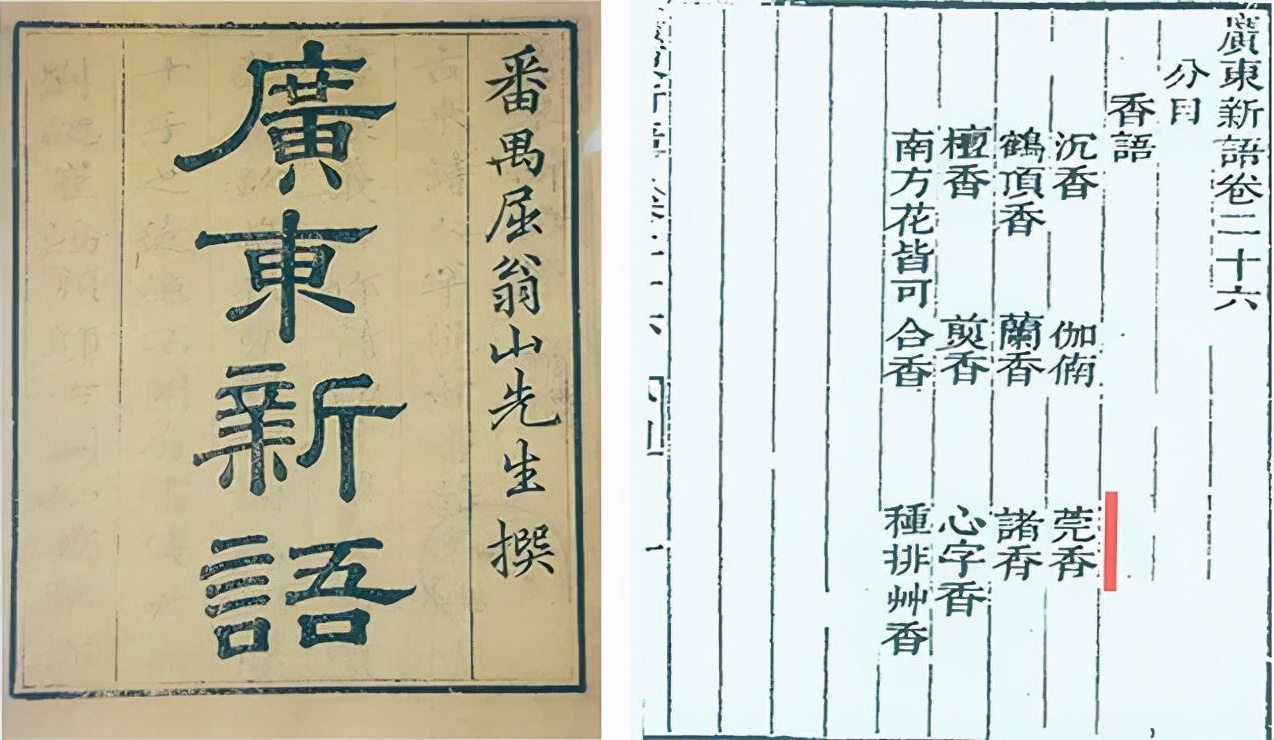 番禺屈翁山先生撰
廣東新語
廣東新語卷二十六
分目
香語
沉香 伽㑲 莞香
鶴頂香 蘭香 諸香
檀香 煎香 心字香
南方花皆可合香 種排艸香